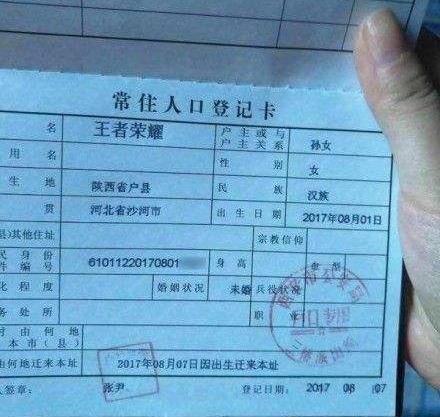 常住人口登记卡
名 王者荣耀 户主或与户主关系 孙女
用名 性别 女
生地 陕西省户县 民族 汉族
贯 河北省沙河市 出生日期 2017年08月01日
县)其他住址 宗教信仰
民身份件编号 61011220170801 身高 血型
化程度 婚姻状况 未婚 兵役状况
务处所 职业
时由何地本市(县)
由何地迁来本址 2017年08月07日因出生迁来本址
人签章: 张尹 登记日期: 2017 08 07